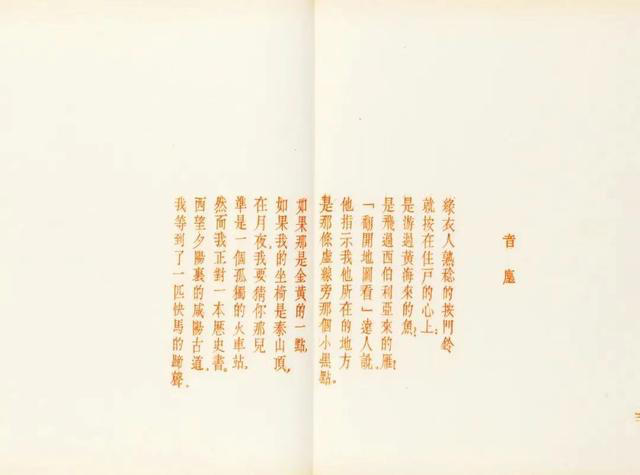 音塵
綠衣人熟稔的按門鈴
就按在住戶的心上:
是游過黃海來的魚?
是飛過西伯利亞來的雁?
「翻開地圖看」遠人說。
他指示我他所在的地方
是那條虛線旁那個小黑點。
如果那是金黃的一點,
如果我的坐椅是泰山頂,
在月夜,我要猜你那兒
準是一個孤獨的火車站。
然而我正對一本歷史書。
西望夕陽裏的咸陽古道,
我等到了一匹快馬的蹄聲。